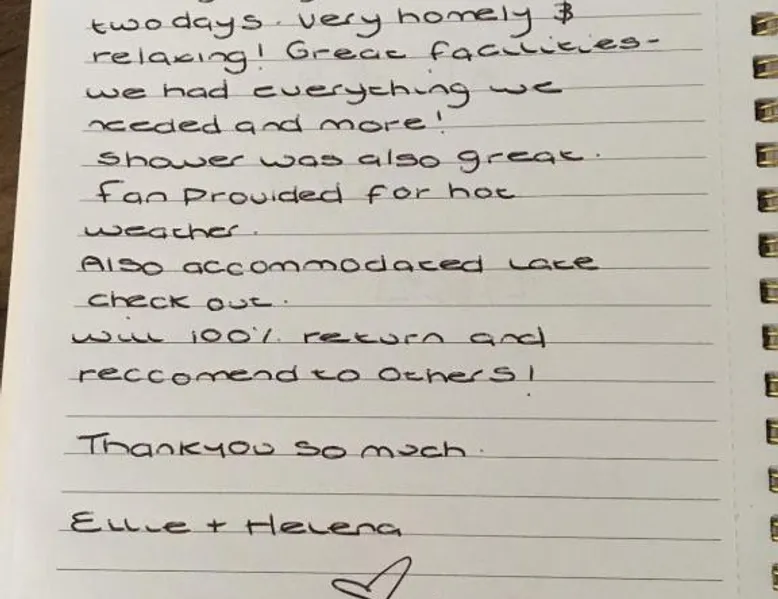 two days. very homely &
relaxing! Great facilities-
we had everything we
needed and more!
shower was also great.
fan provided for hot
weather.
Also accommodated late
check out.
will 100% return and
reccomend to others!
Thankyou so much.
Ellie + Helena